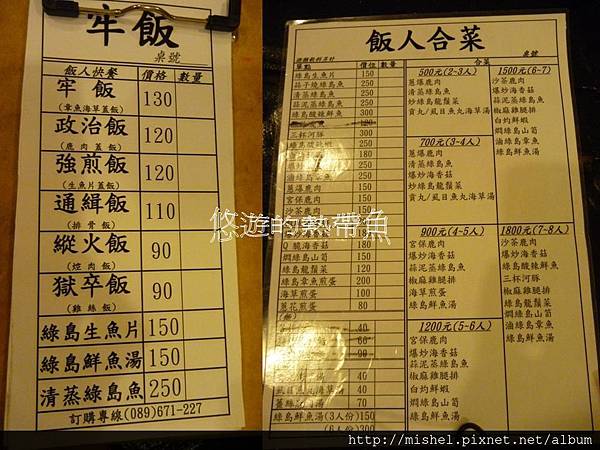 牢飯
桌號
飯人快餐 價格 數量
牢飯 130
(章魚海草蓋飯)
政治飯 120
(鹿肉蓋飯)
強煎飯 120
(生魚片蓋飯)
通緝飯 110
(排骨飯)
縱火飯 90
(焢肉飯)
獄卒飯 90
(雞絲飯)
綠島生魚片 150
綠島鮮魚湯 150
清蒸綠島魚 250
訂購專線(089)671-227
飯人合菜
桌號
單點 價位 數量 合菜
綠島生魚片 150
蒜子燒綠島魚 250
清蒸綠島魚 250
蒜泥蒸綠島魚 250
綠島酸辣鮮魚 300
120
三杯河豚 300
250
蔥爆鹿肉 180
250
滷綠島章魚 250
蔥爆鹿肉 150
宮保鹿肉 150
沙茶鹿肉 150
180
Q脆海香菇 150
燜綠島山筍 150
綠島龍鬚菜 150
綠島章魚煎蛋 200
海草煎蛋 90
蔥花煎蛋 80
40
60
90
60
70
40
綠島鮮魚湯(3人份) 150
(6人份) 300
500元(2-3人)
蔥爆鹿肉
清蒸綠島魚
炒綠島龍鬚菜
貢丸/虱目魚丸海草湯
700元(3-4人)
蔥爆鹿肉
清蒸綠島魚
爆炒海香菇
炒綠島龍鬚菜
貢丸/虱目魚丸海草湯
900元(4-5人)
宮保鹿肉
爆炒海香菇
蒜泥蒸綠島魚
椒麻雞腿排
海草煎蛋
綠島鮮魚湯
1200元(5-6人)
宮保鹿肉
爆炒海香菇
蒜泥蒸綠島魚
椒麻雞腿排
白灼鮮蝦
燜綠島山筍
綠島鮮魚湯
1500元(6-7)
沙茶鹿肉
爆炒海香菇
蒜泥蒸綠島魚
椒麻雞腿排
白灼鮮蝦
燜綠島山筍
滷綠島章魚
綠島鮮魚湯
1800元(7-8人)
沙茶鹿肉
綠島酸辣鮮魚
三杯河豚
椒麻雞腿排
爆炒海香菇
燜綠島山筍
滷綠島章魚
綠島鮮魚湯
悠遊的熱帶魚
http://mishel.pixnet.net/album